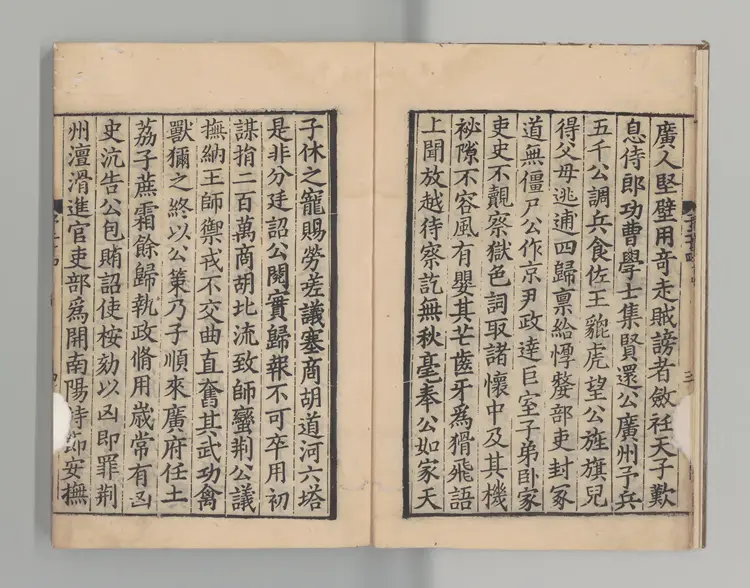 廣人堅壁用奇走賊謗者斂衽天子歎
息侍郎功曹學士集賢還公廣州予兵
五千公調兵食佐王貔虎望公旌旗兒
得父母逃逋四歸稟給惸嫠部吏封冢
道無僵尸公作京尹政達巨室子弟卧家
吏史不覿察獄色詞取諸懷中及其機
祕隙不容風有嬰其芒齒牙爲猾飛語
上聞放越待察訖無秋毫奉公如家天
子休之寵賜勞嗟議塞商胡道河六塔
是非分廷詔公閱實歸報不可卒用初
謀捐二百萬商胡北流致師蠻荆公議
撫納王師禦戎不交曲直奮其武功禽
獸獮之終以公策乃子順來廣府任土
荔子蔗霜餘歸執政脩用歲常有凶
史沆告公包賄詔使桉劾以凶即罪荆
州澶滑進官吏部爲開南陽持節安撫